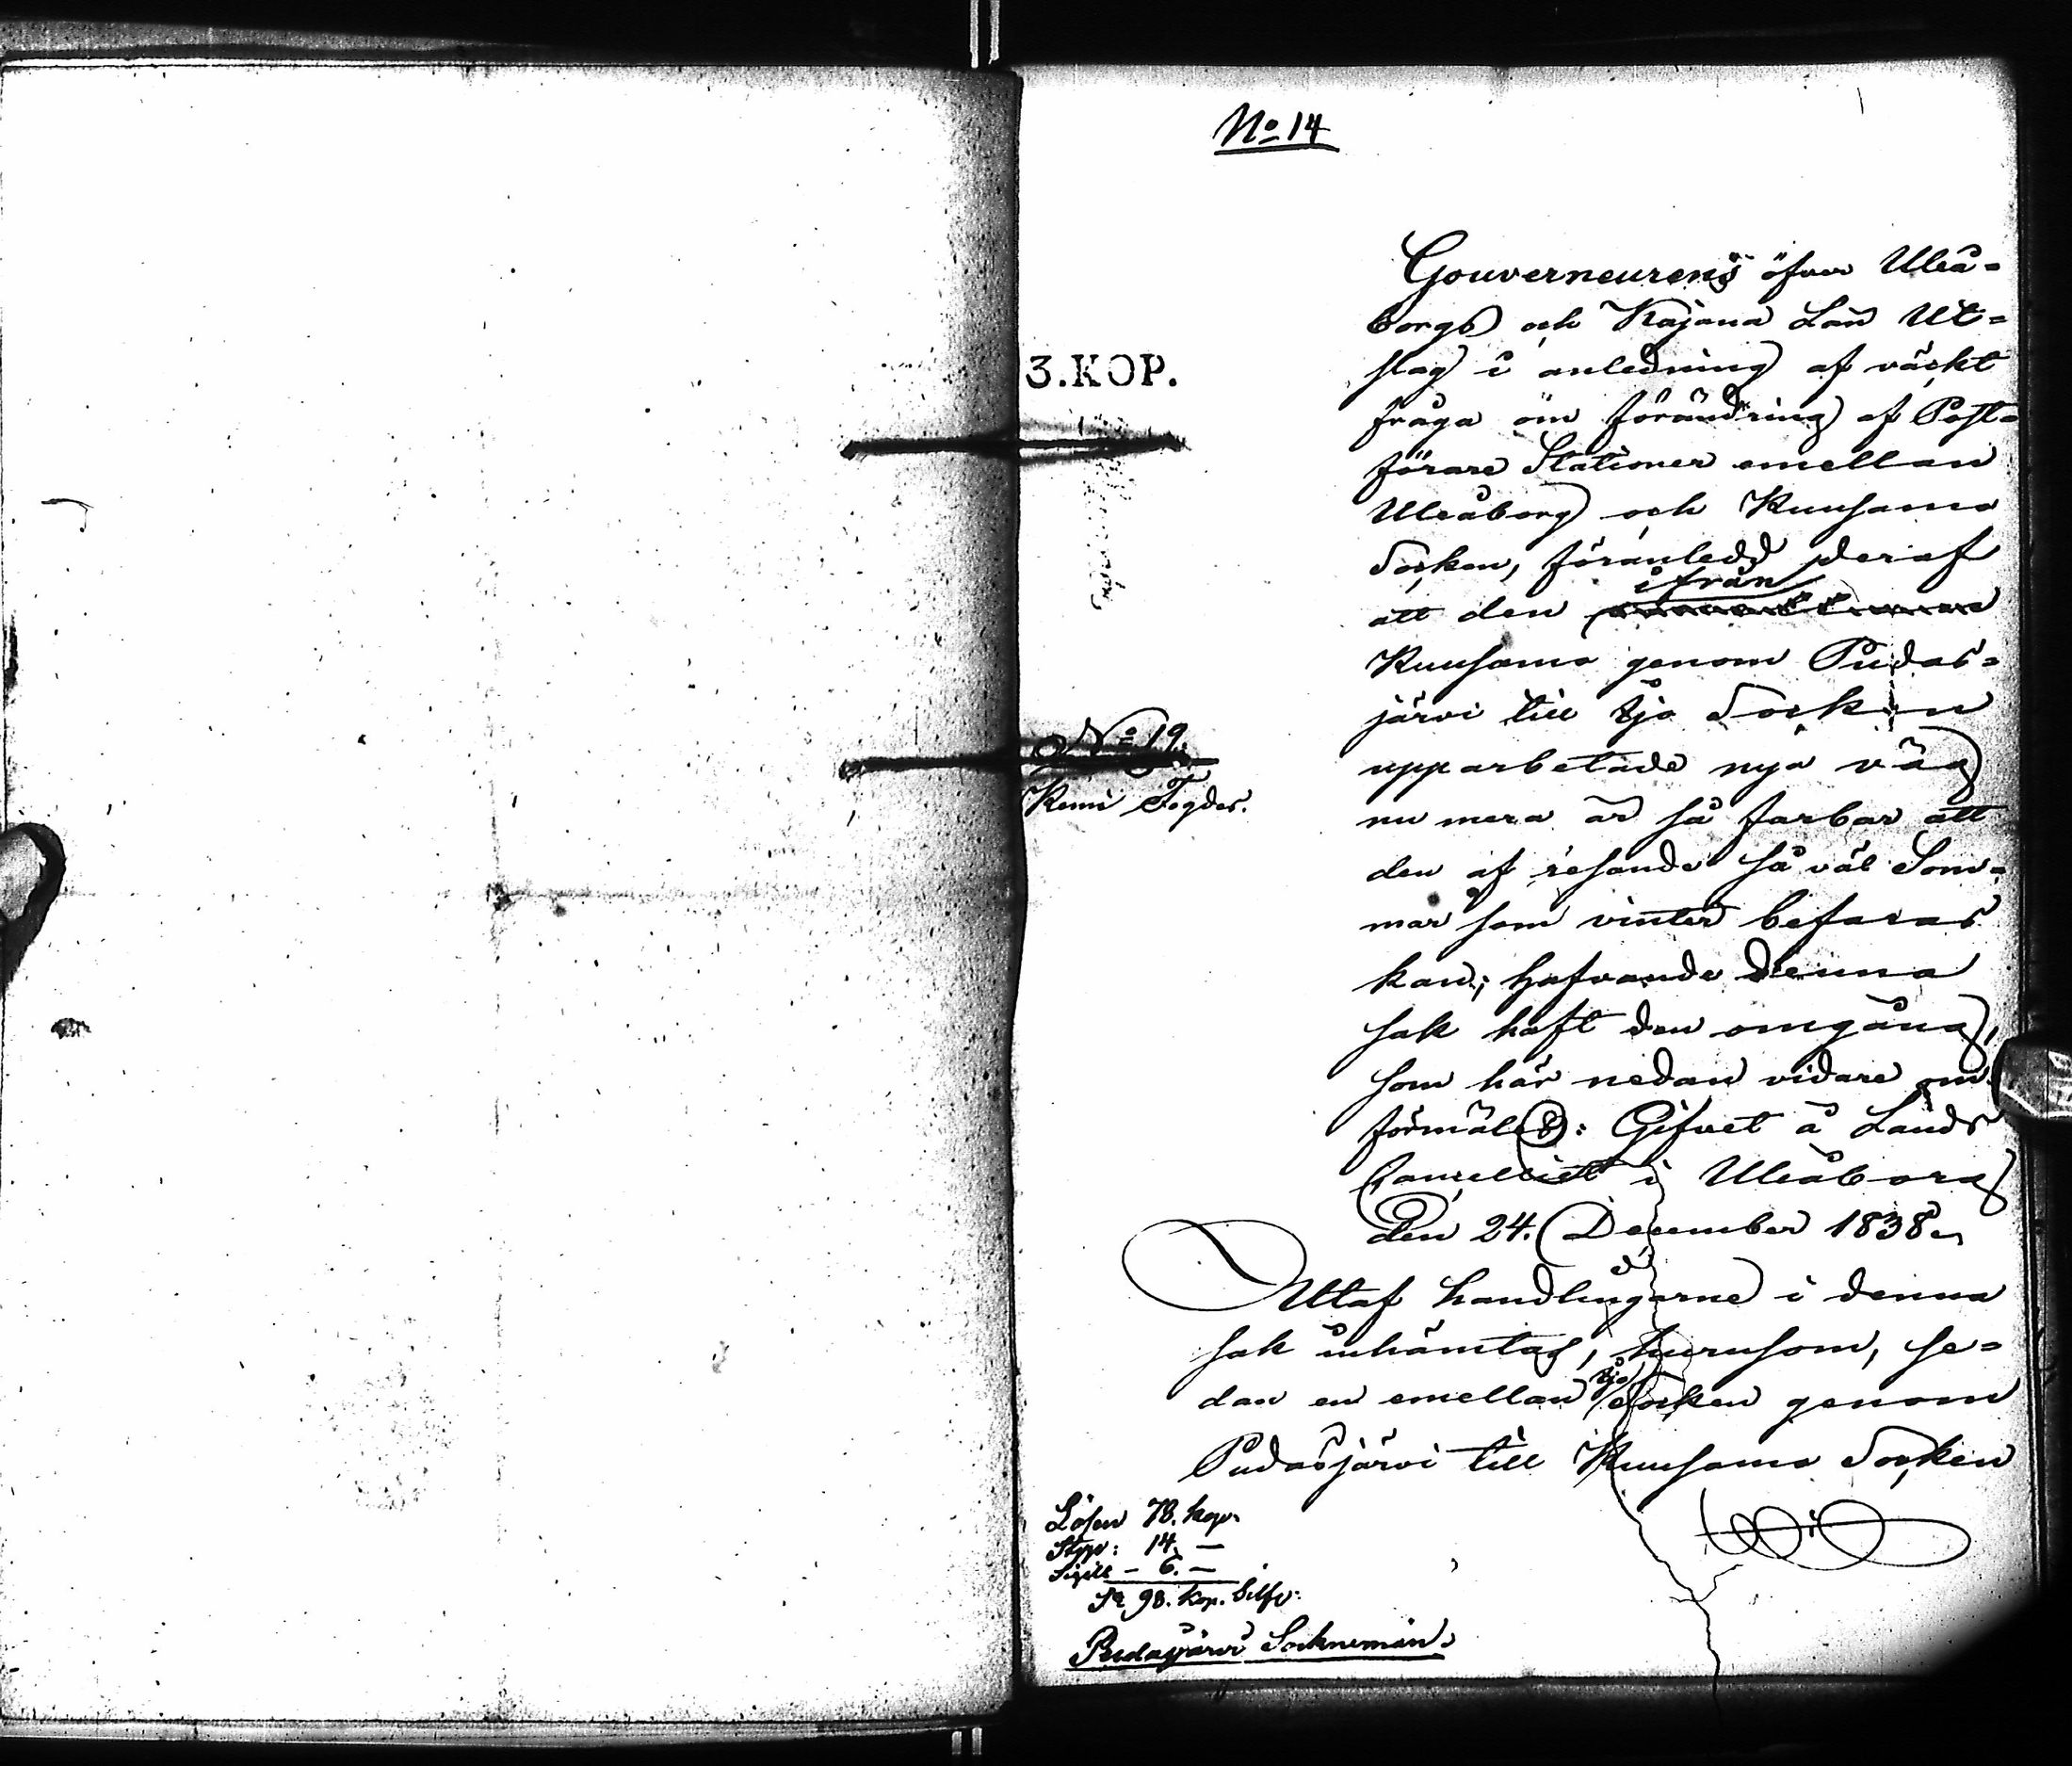 No 14
Gouverneurens öfver Uleå-
borgs och Kajana Län Ut-
slag i anledning af väckt
fråga om förändring af Post-
förare Stationer emellan
Uleåborg och Kuusamo
Socken, föranledd deraf
ifrån
att den
Kuusamo genom Pudas-
järvi till Ijo Socken
upparbetade nya väg
nu mera är så farbar att
den af resande så väl Som-
mar som vinter befaras
kan; hafvande denna
sak haft den omgång,
som här nedan vidare om-
förmäles: Gifvet å Lands
Cancelliet i Uleåborg
den 24. December 1838.
3.KOP.
No 19.
Kemi Fögder.
Utaf handlingarne i denna
sak inhämtas, hurusom, se-
dan en emellan Ijo Socken genom
Pudasjärvi till Kuusamo Socken
Lösen 78. kop.
Stpr: 14. —
Sigill — 6. —
S:a 98. kop. Silfv:
Pudasjärvi Sockneman.